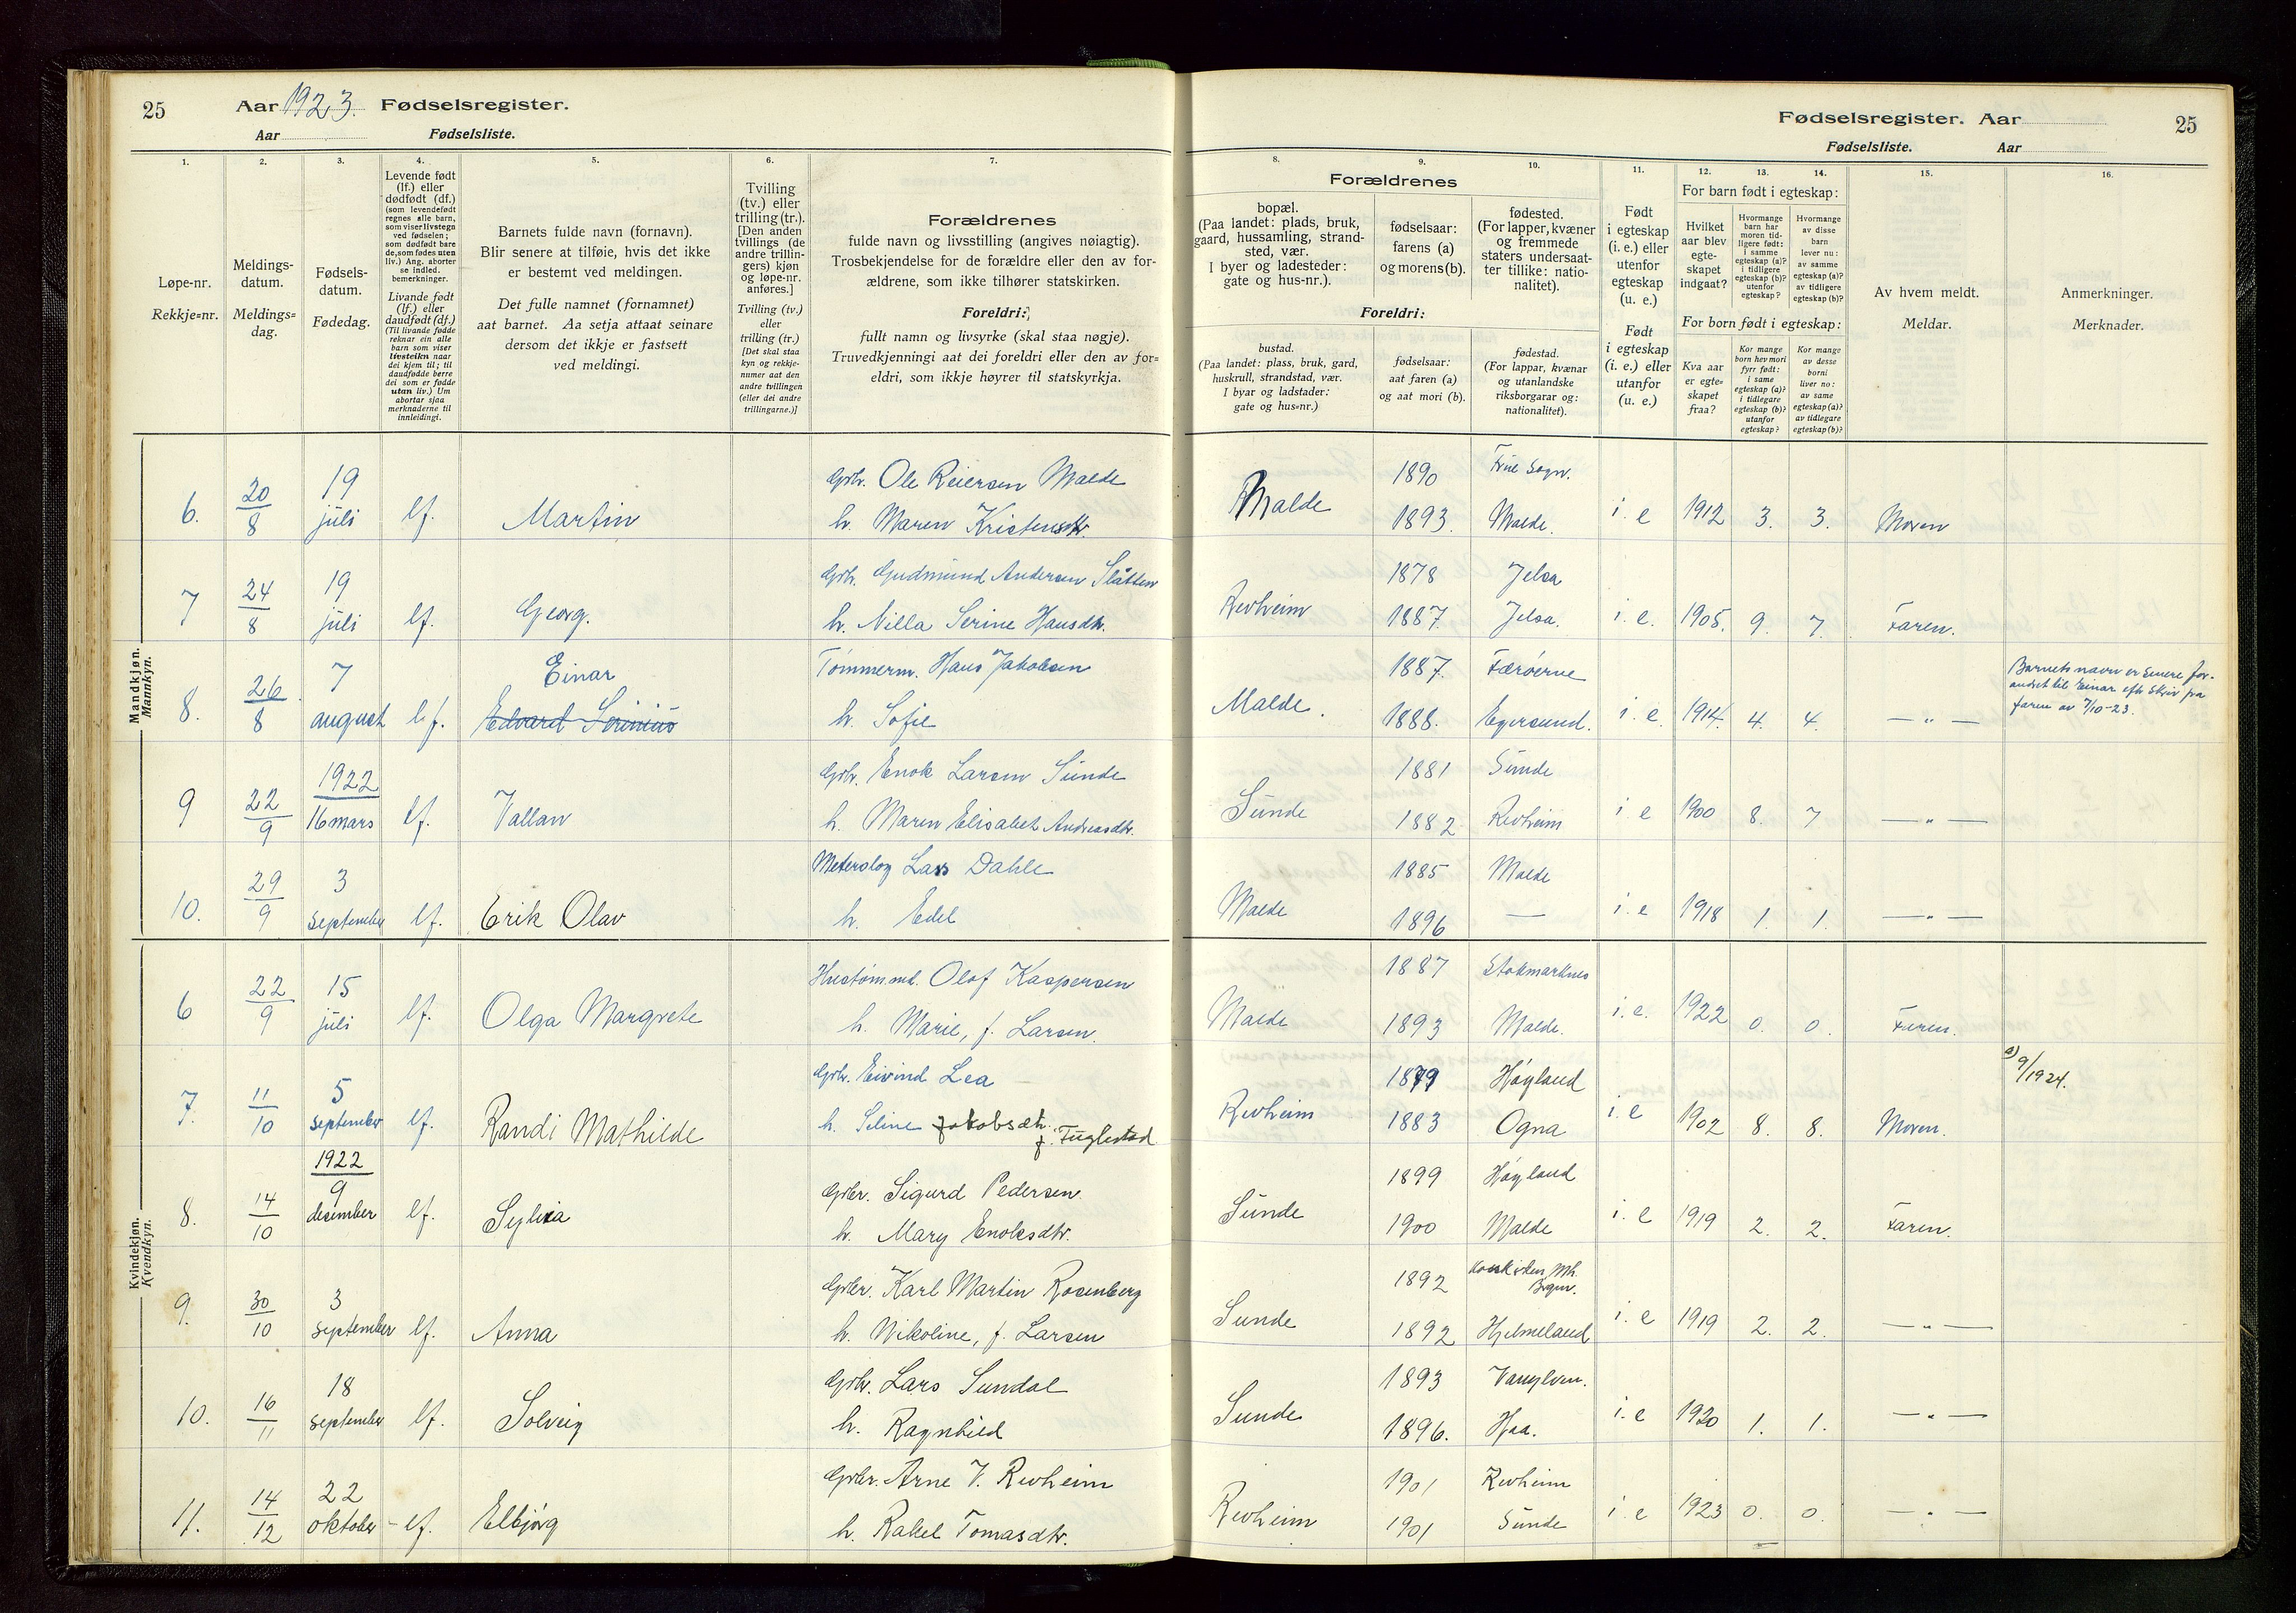 25 Aar 1923. Fødselsregister.
Aar Fødselsliste.
Fødselsregister. Aar 25
Fødselsliste. Aar
1. 2. 3. 4. 5. 6. 7. 8. 9. 10. 11. 12. 13. 14. 15. 16.
Løpe-nr.
Rekkje=nr.
Meldings-
datum.
Meldings=
dag.
Fødsels-
datum.
Fødedag.
Levende født
(lf.) eller
dødfødt (df.)
(som levendefødt
regnes alle barn,
som viser livstegn
ved fødselen;
som dødfødt bare
de, som fødes uten
liv.) Ang. aborter
se indled.
bemerkninger.
Livande født
(lf.) eller
daudfødt (df.)
(Til livande fødde
reknar ein alle
barn som viser
livsteikn naar
dei kjem til; til
daudfødde berre
dei som er fødde
utan liv.) Um
abortar sjaa
merknaderne til
innleidingi.
Barnets fulde navn (fornavn).
Blir senere at tilføie, hvis det ikke
er bestemt ved meldingen.
Det fulle namnet (fornamnet)
aat barnet. Aa setja attaat seinare
dersom det ikkje er fastsett
ved meldingi.
Tvilling
(tv.) eller
trilling (tr.).
[Den anden
tvillings (de
andre trillin-
gers) kjøn
og løpe-nr.
anføres.]
Tvilling (tv.)
eller
trilling (tr.)
[Det skal staa
kyn og rekkje-
numer aat den
andre tvillingen
(eller dei andre
trillingarne.)]
Forældrenes
fulde navn og livsstilling (angives nøiagtig).
Trosbekjendelse for de forældre eller den av for-
ældrene, som ikke tilhører statskirken.
Foreldri:
fullt namn og livsyrke (skal staa nøgje).
Truvedkjenningi aat dei foreldri eller den av for=
eldri, som ikkje høyrer til statskyrkja.
Forældrenes
bopæl.
(Paa landet: plads, bruk,
gaard, hussamling, strand-
sted, vær.
I byer og ladesteder:
gate og hus-nr.).
fødselsaar:
farens (a)
og morens (b).
fødested.
(For lapper, kvæner
og fremmede
staters undersaat-
ter tillike: natio-
nalitet).
Foreldri:
bustad.
(Paa landet: plass, bruk, gard,
huskrull, strandstad, vær.
I byar og ladstader:
gate og hus=nr.)
fødselsaar:
aat faren (a)
og aat mori (b).
fødestad.
(For lappar, kvænar
og utanlandske
riksborgarar og:
nationalitet).
Født
i egteskap
(i. e.) eller
utenfor
egteskap
(u. e.)
Født
i egteskap
(i. e.) eller
utanfor
(u. e.)
For barn født i egteskap:
Hvilket
aar blev
egte-
skapet
indgaat?
Hvormange
barn har
moren tid-
ligere født:
i samme
egteskap (a)?
i tidligere
egteskap (b)?
utenfor
egteskap?
Hvormange
av disse
barn
lever nu:
av samme
egteskap (a)?
av tidligere
egteskap (b)?
For born født i egteskap:
Kva aar
er egte=
skapet
fraa?
Kor mange
born hev mori
fyrr født:
i same
egteskap (a)?
i tidlegare
egteskap (b)?
utanfor
egteskap?
Kor mange
av desse
borni
liver no:
av same
egteskap (a)?
av tidlegare
egteskap (b)?
Av hvem meldt.
Meldar.
Anmerkninger.
Merknader.
Mandkjøn.
Mannkyn.
19 Grbr. Ole Reiersen Malde 1890 Frue Sogn.
6. 20/8 juli lf. Martin h. Maren Kristensdtr. Malde 1893. Malde. i. e 1912 3. 3. Moren
19 Grbr. Gudmund Andersen Slåtten 1878 Jelsa
7 24/8 juli lf. Georg. h. Nilla Serine Hansdtr. Revheim 1887. Jelsa. i. e. 1905. 9. 7. Faren.
7 Einar Tømmerm. Hans Jakobsen 1887. Færøerne Barnets navn er senere for-
andret til Einar efter skriv fra
faren av 7/10-23.
8. 26/8 august lf. Edvard Serinius h. Sofie Malde. 1888. Egersund. i. e. 1914. 4. 4 — " —
1922 Grbr. Enok Larsen Sunde 1881 Sunde
9 22/9 16 mars lf. Vallan h. Maren Elisabet Andreasdtr. Sunde 1882 Revheim i. e 1900 8. 7 — " —
3 Meterolog Lars Dahle 1885 Malde
10. 29/9 september lf. Erik Olav h. Edel Malde 1896 — i. e 1918 1. 1. — " —
Kvindekjøn.
Kvendkyn.
15 Olof Kaspersen 1887 Stokmarknes
6 22/9 juli lf. Olga Margrete h. Marie, f. Larsen. Malde 1893 Malde. i. e. 1922 0. 0. Faren.
5 Grbr. Eivind Lea 1879 Høyland a) 9/1924.
7. 11/10 september lf. Randi Mathilde h. Seline Jakobsdtr. f. Fuglestad Revheim 1883 Ogna i. e 1902 8. 8. Moren.
1922
9 Grbr. Sigurd Pedersen. 1899 Høyland
8. 14/10 desember lf. Sylvia h. Mary Enoksdtr. Sunde 1900 Malde i. e 1919 2. 2. Faren.
3 Grbr. Karl Martin Rosenberg 1892
9. 30/10 september lf. Anna h. Nikoline, f. Larsen Sunde 1892 Hjelmeland i. e 1919 2. 2. — " —
18 Grbr. Lars Sundal 1893 Vanylven.
10. 16/11 september lf. Solveig h. Ragnhild Sunde 1896. Haa. i. e 1920 1. 1. — " —
22 Grbr. Arne V. Revheim 1901 Revheim
11. 14/12 oktober lf. Elbjørg h. Rakel Tomasdtr. Revheim 1901 Sunde i. e 1923 0. 0. — " —